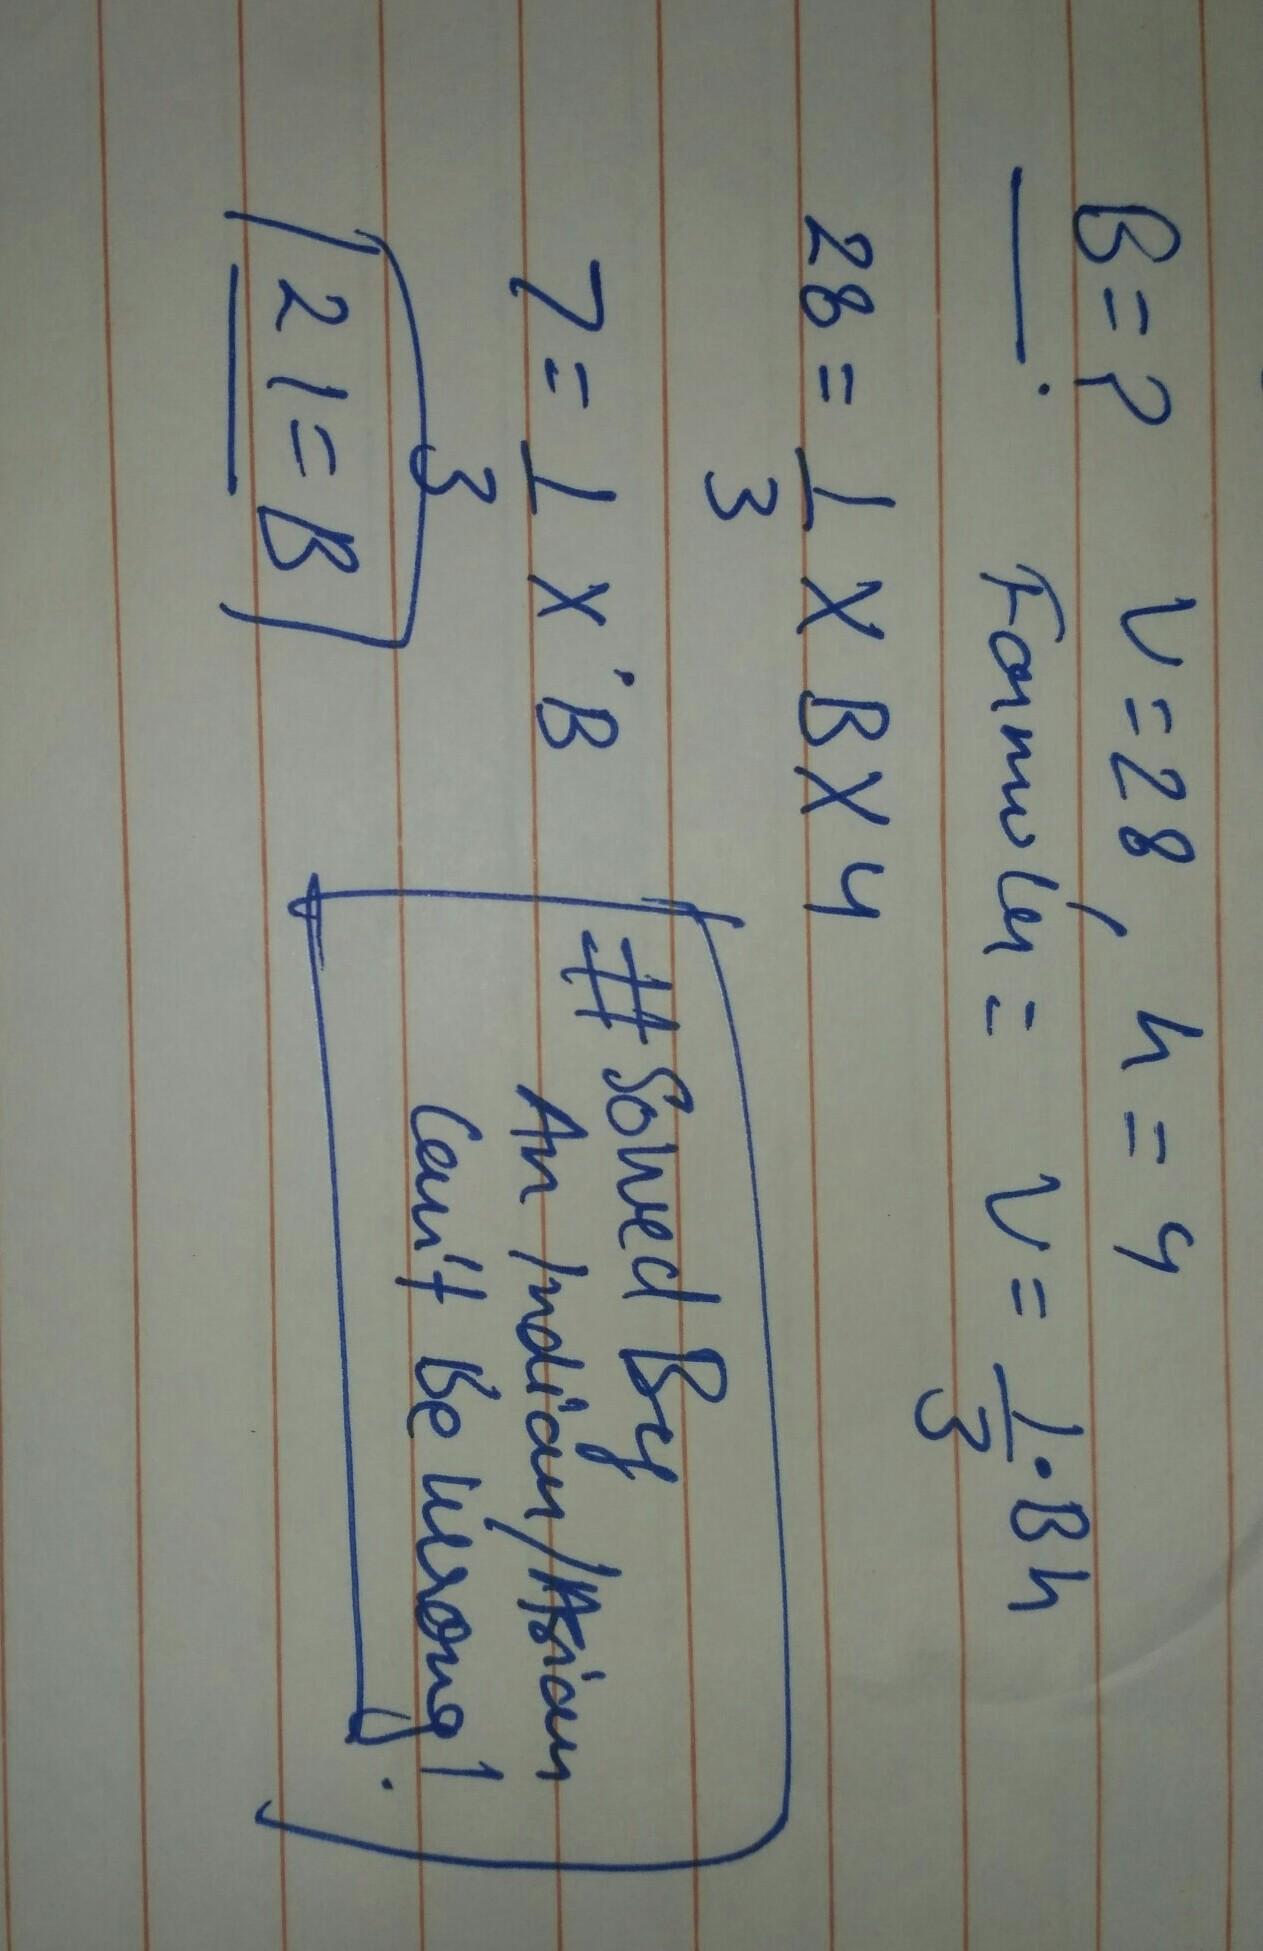 B = ? V = 28, h = 4
Formula = V = 1/3 · Bh
28 = 1/3 X B X 4
7 = 1/3 X B
21 = B
# Solved By
An Indian/Asian
Can't Be Wrong!